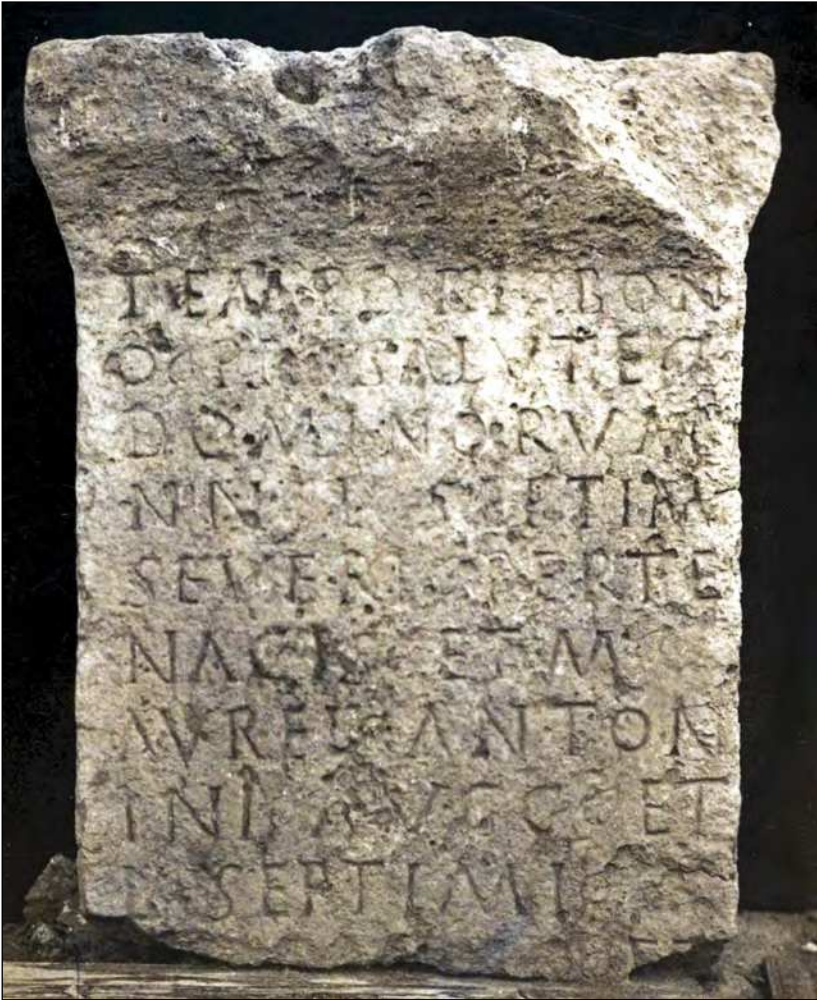 TEMPORI BON
O PRO SALVTE
DOMINORVM
NN L SEPTIM
SEVERI PERTE
NACIS ET M
AVRELI ANTON
INI AVGG ET
L SEPTIMI